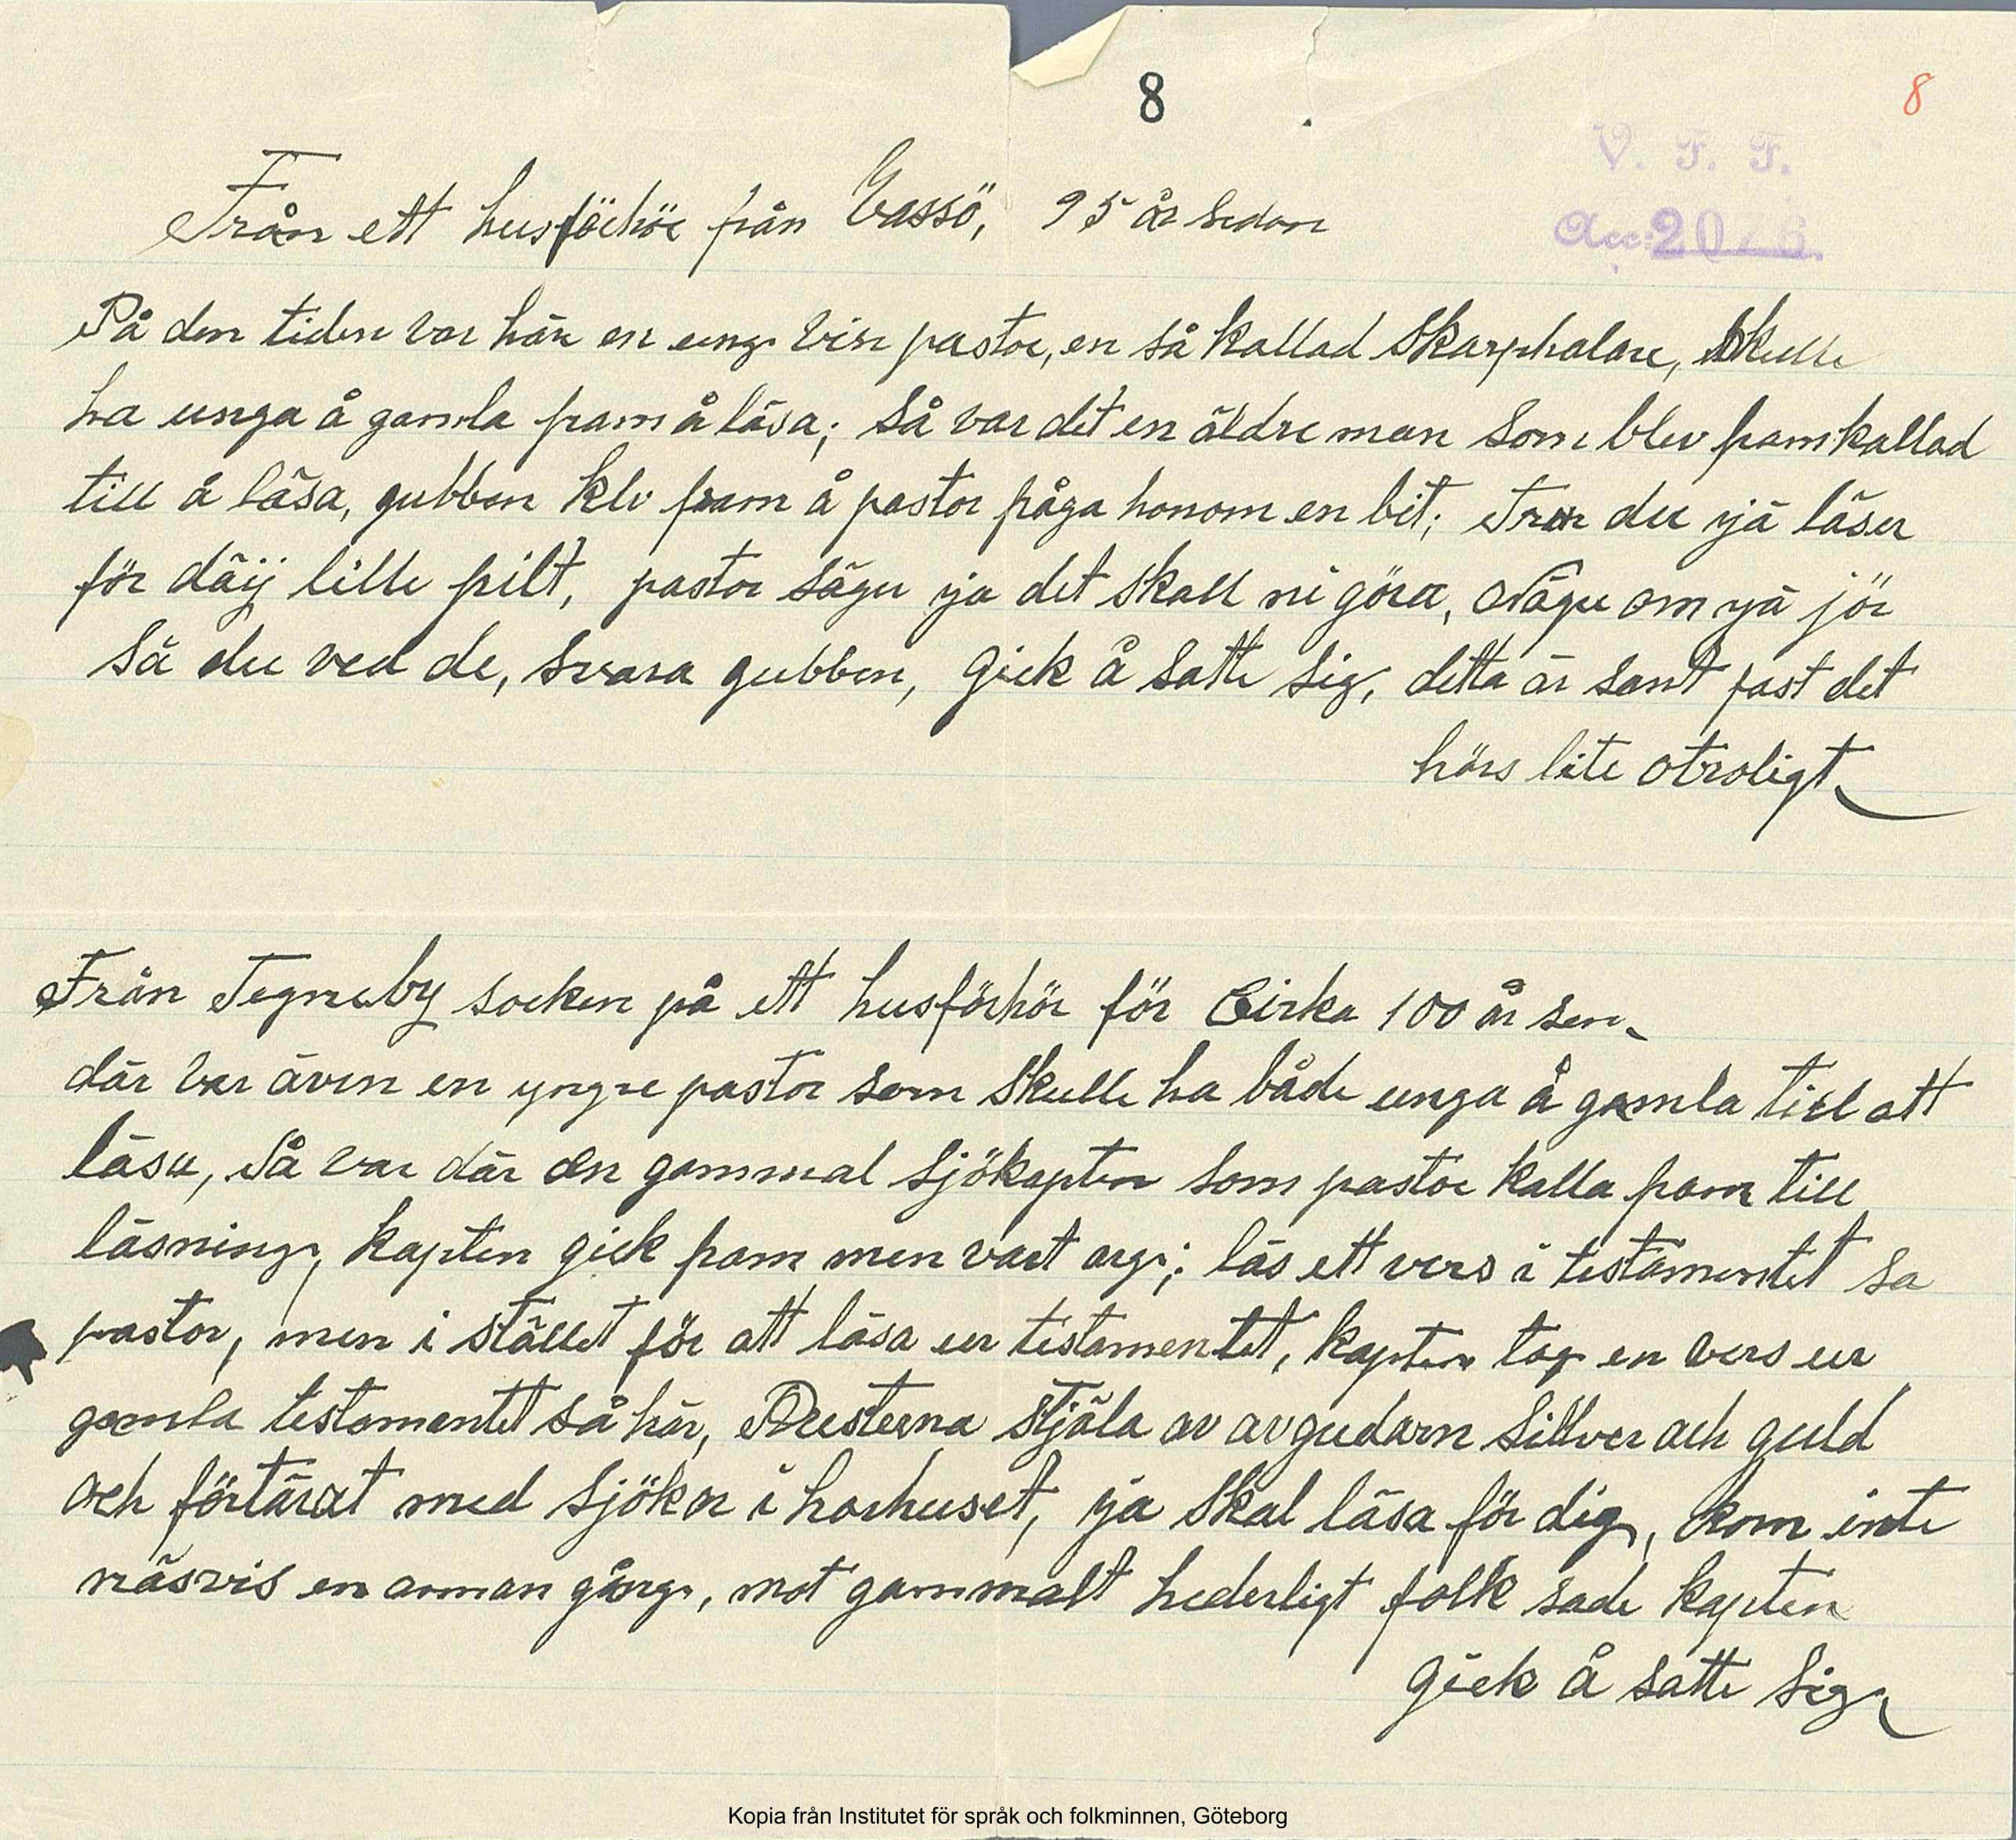 8
8
V. F. F.
Acc: 20
Från ett husförhör från Vassö, 95 år sedan
På den tiden var här en ung vise pastor, en så kallad skarphalare, skulle
ha unga å gamla fram å läsa; så var det en äldre man som blev framkallad
till å läsa, gubben klv fram å pastor fråga honom en bit; Tror du jä läser
för däij lille pilt, pastor säger ja det skall ni göra, Nägu om jä jör
så du ved de, svara gubben, gick å satte sig, detta är sant fast det
hörs lite otroligt
Från Tegneby socken på ett husförhör för Cirka 100 år sen
där var även en yngre pastor som skulle ha både unga å gamla till att
läsa, så var där en gammal sjökapten som pastor kalla fram till
läsning, kapten gick fram men vart arg; läs ett vers i testamentet sa
pastor, men i stället för att läsa ur testamentet, kapten tog en vers ur
gamla testamentet så här, Presterna stjäla av avgudarn sillver och guld
och förtärat med skjökor i horhuset, ja skal läsa för dig, kom inte
näsvis en annan gång, mot gammalt hederligt folk sade kapten
gick å satte sig
Kopia från Institutet för språk och folkminnen, Göteborg